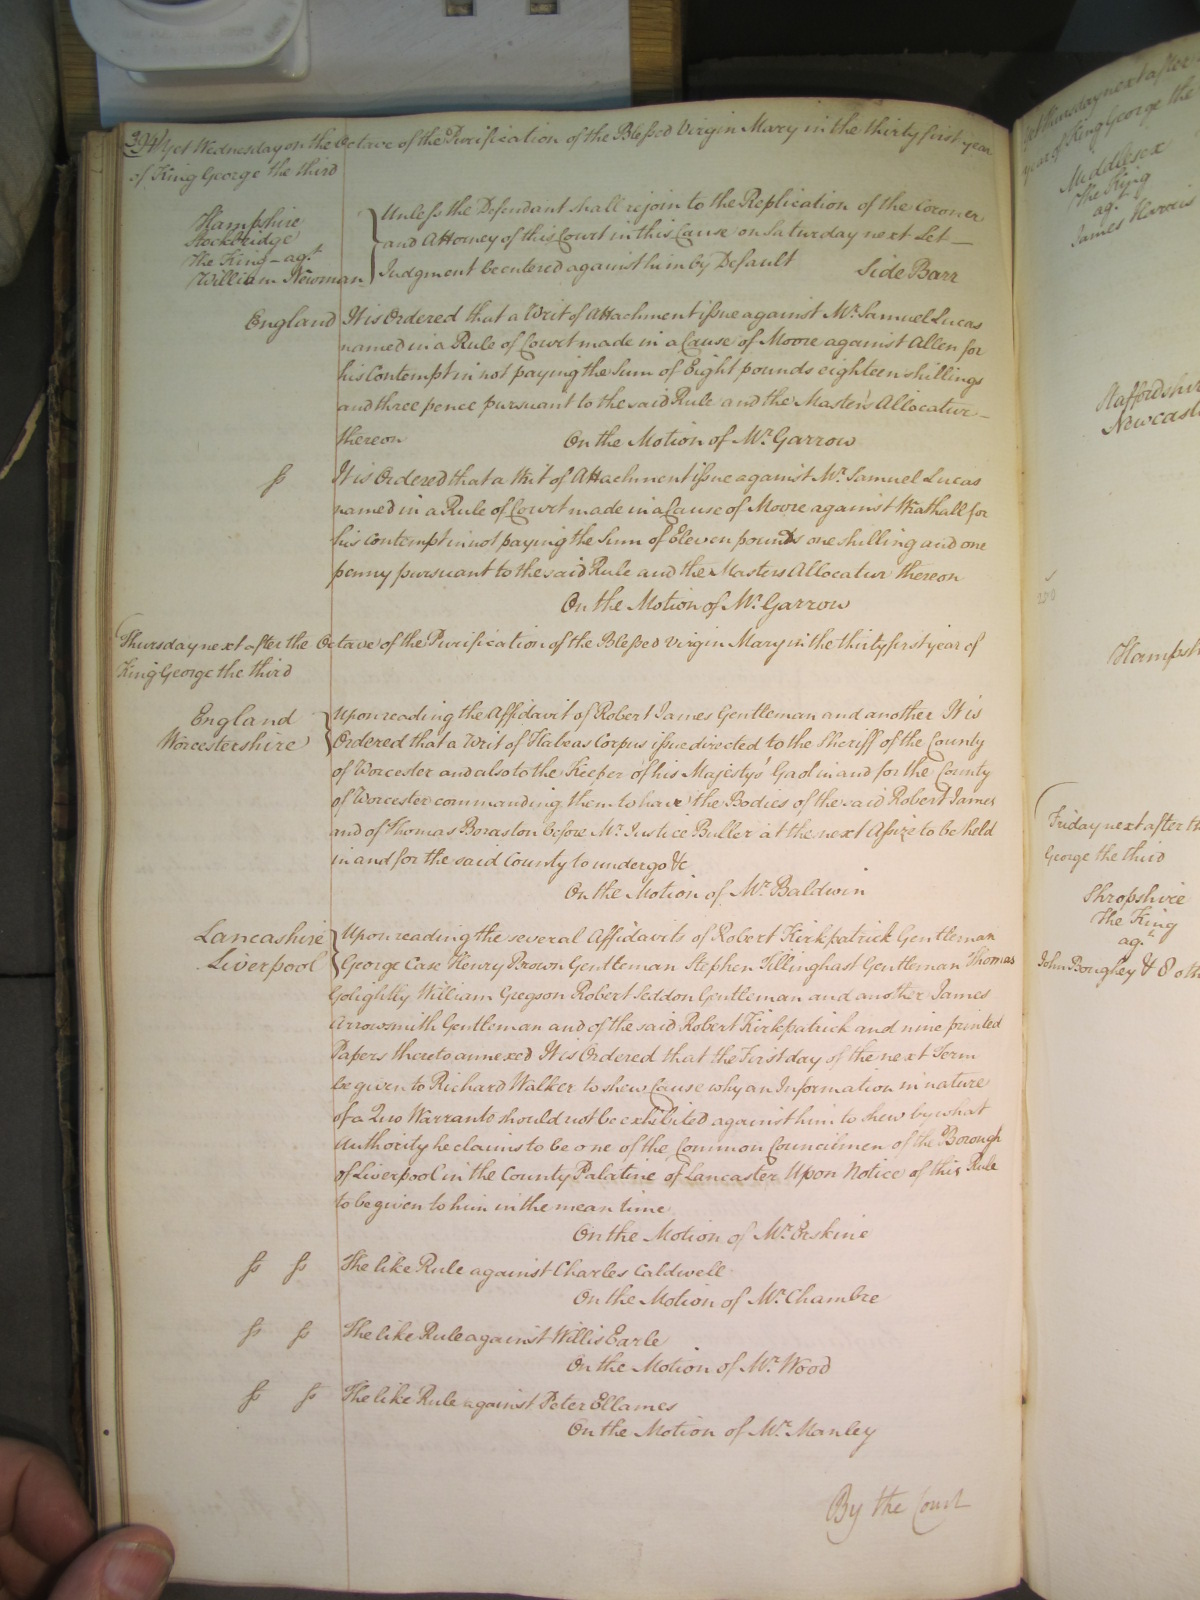 394 Yet Wednesday on the Octave of the Purification of the Blessed Virgin Mary in the thirty first year
of King George the third
Hampshire
Stockbridge
The King - agt
William Newman
Unless the Defendant shall rejoin to the Replication of the Coroner
and Attorney of this Court in this Cause on Saturday next Let
Judgment be entered against him by Default Side Barr
England It is Ordered that a Writ of Attachment issue against Mr Samuel Lucas
named in a Rule of Court made in a Cause of Moore against Allen for
his Contempt in not paying the Sum of Eight pounds eighteen shillings
and three pence pursuant to the said Rule and the Masters Allocatur
thereon On the Motion of Mr Garrow
ss It is Ordered that a Writ of Attachment issue against Mr Samuel Lucas
named in a Rule of Court made in a Cause of Moore against Wrathall for
his Contempt in not paying the Sum of Eleven pounds one shilling and one
penny pursuant to the said Rule and the Masters Allocatur thereon
On the Motion of Mr Garrow
Thursday next after the Octave of the Purification of the Blessed Virgin Mary in the thirty first year of
King George the third
England
Worcestershire
Upon reading the Affidavit of Robert James Gentleman and another It is
Ordered that a Writ of Habeas Corpus issue directed to the Sheriff of the County
of Worcester and also to the Keeper of his Majestys Gaol in and for the County
of Worcester commanding them to have the Bodies of the said Robert James
and of Thomas Boraston before Mr Justice Buller at the next Assize to be held
in and for the said County to undergo &c
On the Motion of Mr Baldwin
Lancashire
Liverpool
Upon reading the several Affidavits of Robert Kirkpatrick Gentleman
George Case Henry Brown Gentleman Stephen Tillinghast Gentleman Thomas
Golightly William Gregson Robert Seddon Gentleman and another James
Arrowsmith Gentleman and of the said Robert Kirkpatrick and nine printed
Papers thereto annexed It is Ordered that the First day of the next Term
be given to Richard Walker to shew Cause why an Information in nature
of a Quo Warranto should not be exhibited against him to shew by what
Authority he claims to be one of the Common Councilmen of the Borough
of Liverpool in the County Palatine of Lancaster Upon Notice of this Rule
to be given to him in the mean time
On the Motion of Mr Erskine
ss ss The like Rule against Charles Caldwell
On the Motion of Mr Chambre
ss ss The like Rule against Willis Earle
On the Motion of Mr Wood
ss ss The like Rule against Peter Ellames
On the Motion of Mr Manley
By the Court
Yet Thursday next after
year of King George the
Middlesex
The King
agt
James Harris
Staffordshire
Newcastle
Hampsh
Friday next after th
George the third
Shropshire
The King
agt
John Boughey & 8 oth